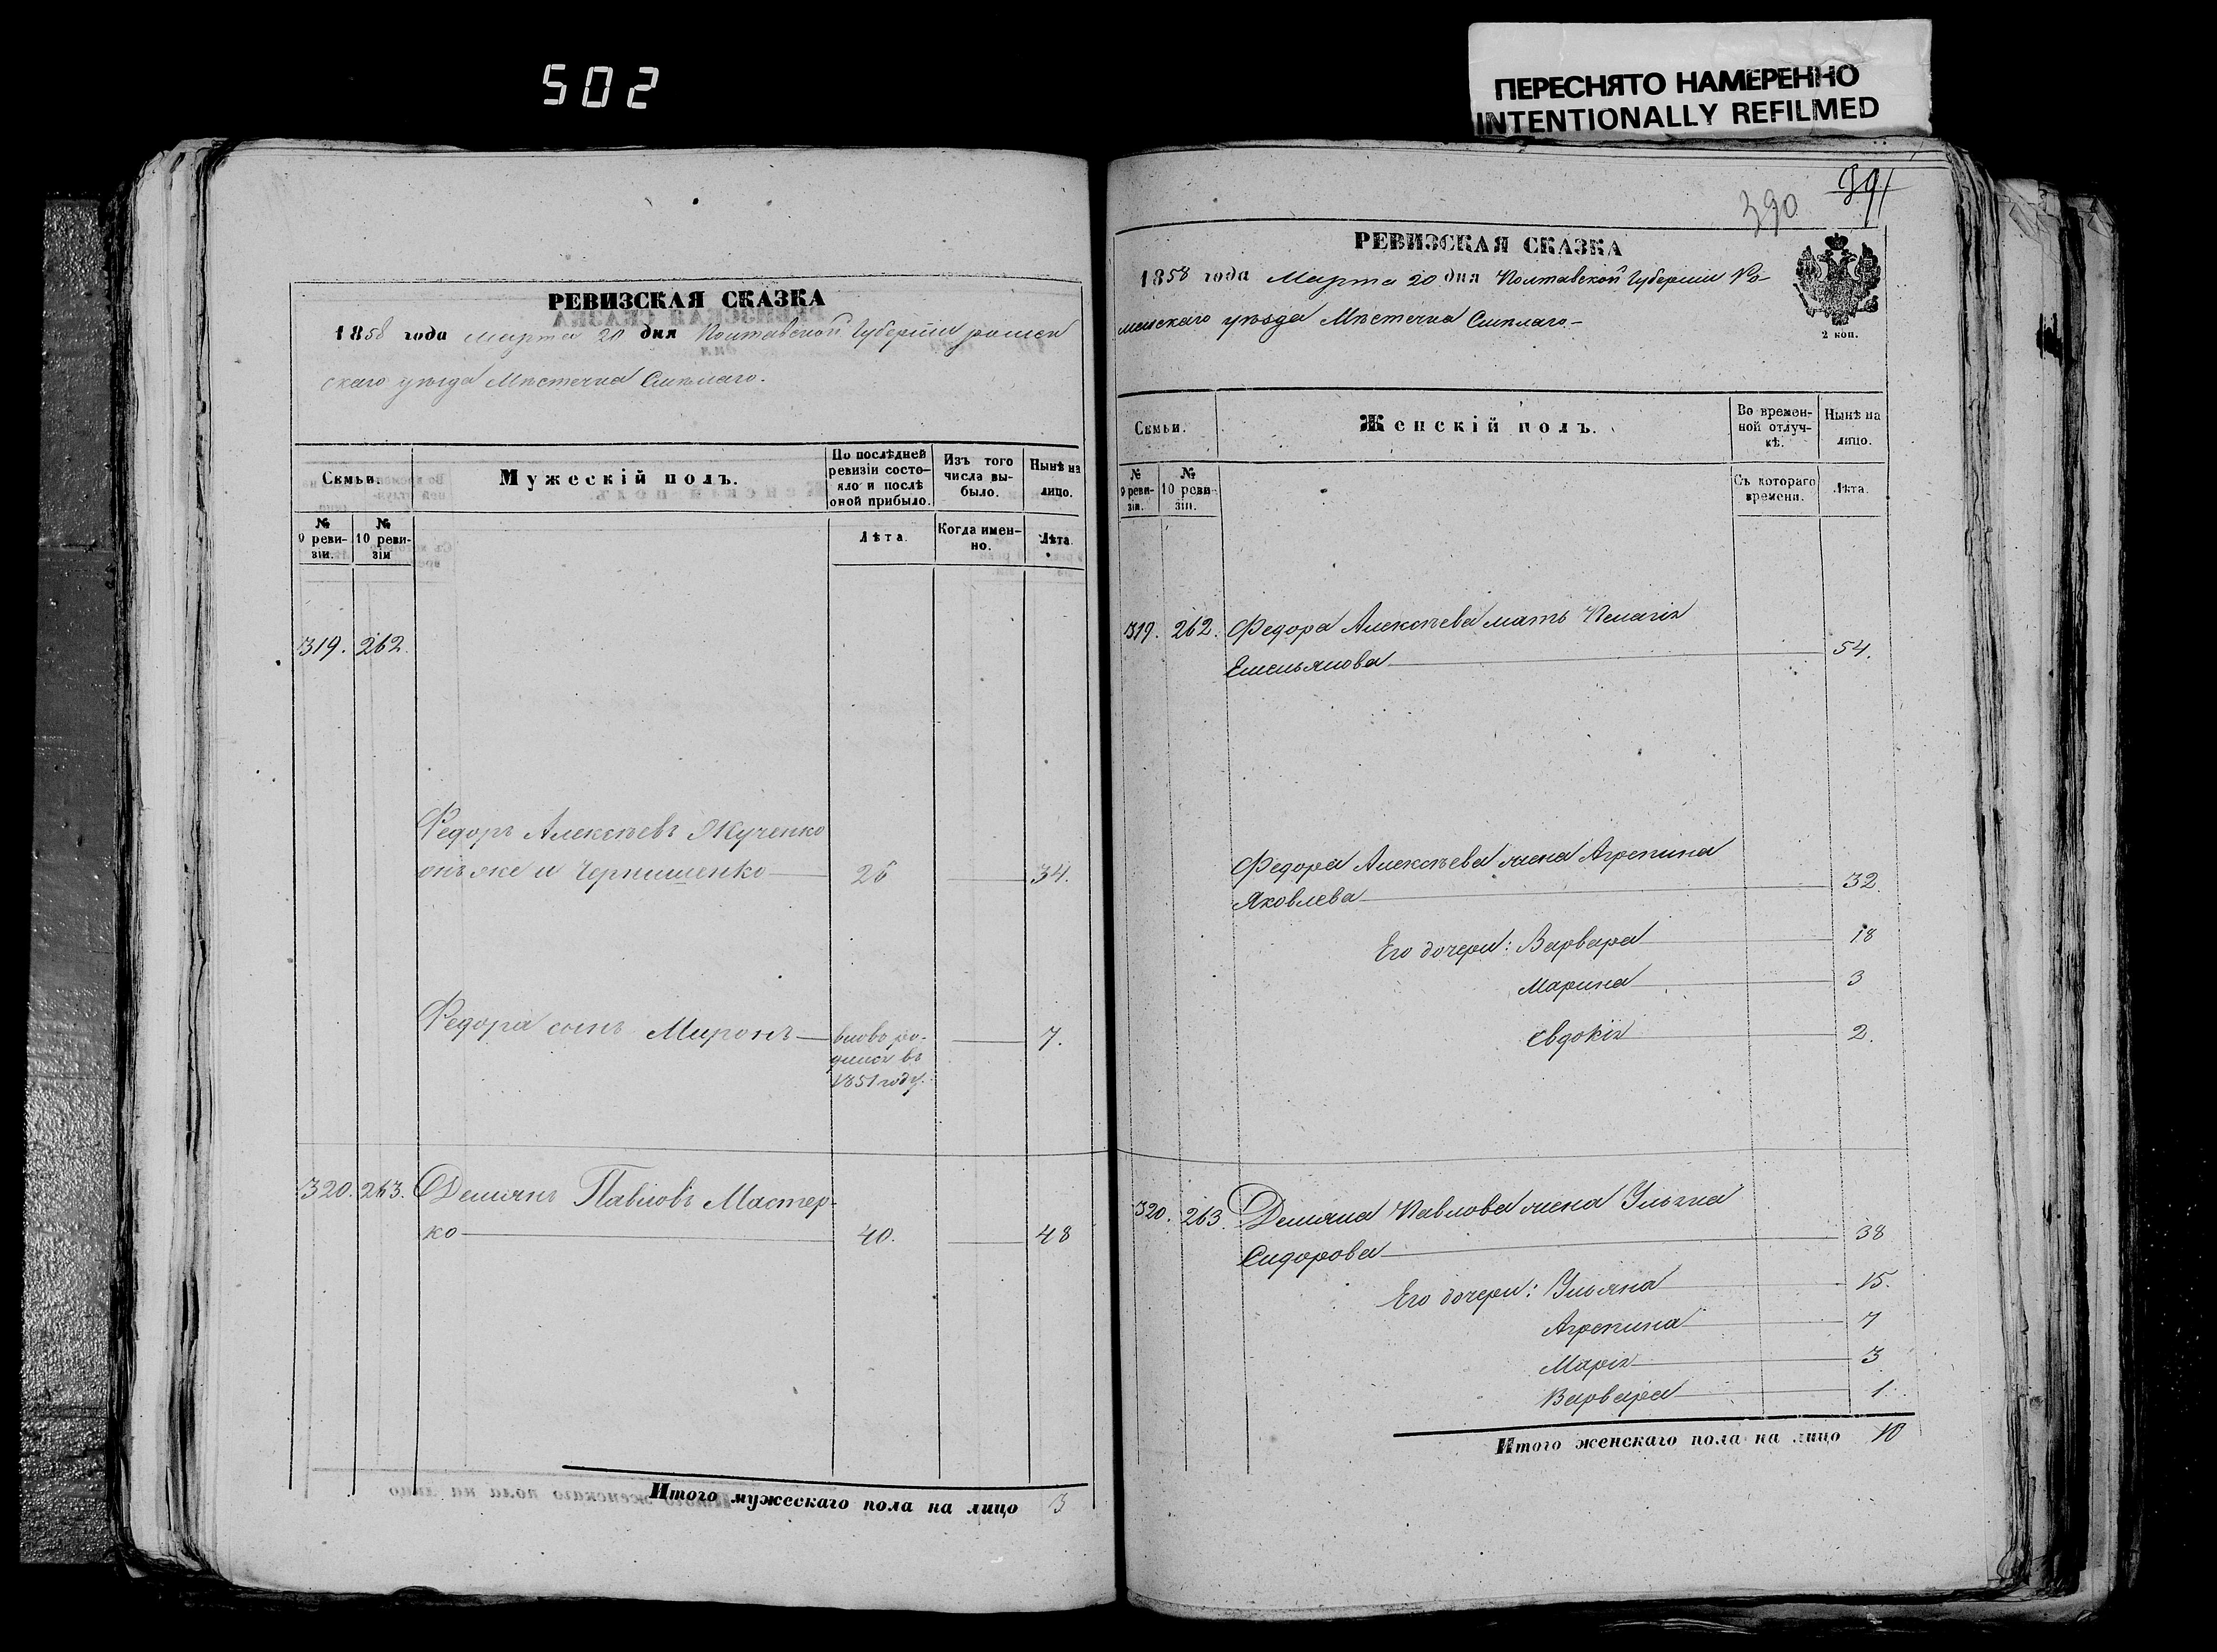 502
ПЕРЕСНЯТО НАМЕРЕННО
INTENTIONALLY REFILMED
РЕВИЗСКАЯ СКАЗКА
1858 года Марта 20 дня Полтавской Губерніи ромен
скаго уѣзда Мѣстечка Смѣлаго.
Семьи. Мужескій полъ. По послѣдней ревизіи состояло и послѣ оной прибыло. Изъ того числа выбыло. Нынѣ на лицо.
№ 9 ревизіи. № 10 ревизіи Лѣта. Когда именно. Лѣта.
319. 262.
Федоръ Алексѣевъ Якученко
онъ же и Чернишенко 26 34.
Федора сынъ Миронъ вновь ро- 7.
дился въ
1851 году.
320. 263. Демянъ Павловъ Мастер-
ко 40. 48
Итого мужескаго пола на лицо 3
390 391
РЕВИЗСКАЯ СКАЗКА
1858 года Марта 20 дня Полтавской Губерніи Ро-
менскаго уѣзда Мѣстечка Смѣлаго.
2 коп.
Семьи. Женскій полъ. Во временной отлучкѣ. Нынѣ на лицо.
№ 9 ревизіи. № 10 ревизіи. Съ котораго времени. Лѣта.
319. 262. Федора Алексѣева мать Пелагія
Емельянова 54.
Федора Алексѣева жена Агрепина
Яковлева 32.
Его дочери: Варвара 18
Марина 3
Евдокія 2.
320. 263. Демяна Павлова жена Ульяна
Сидорова 38
Его дочери: Ульяна 15.
Агрепина 7
Марія 3
Варвара 1.
Итого женскаго пола на лицо 10